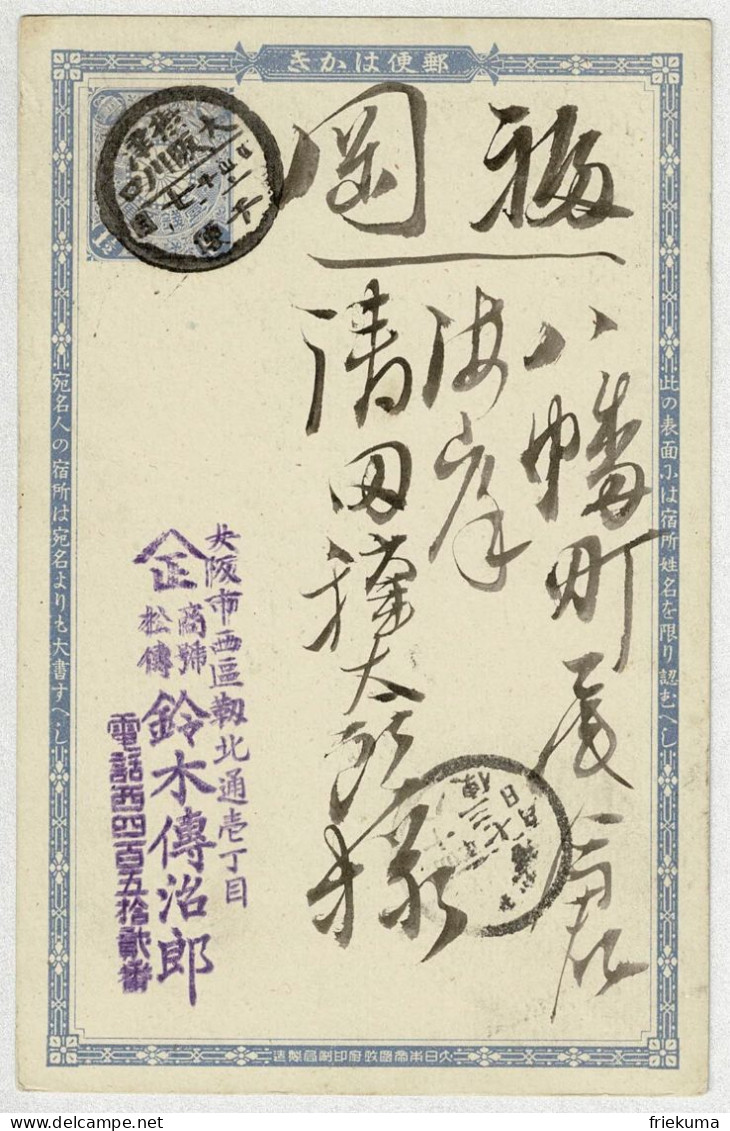 郵便はかき
此の表面には宿所姓名を限り認むへし
福岡
八幡町
海岸
清田藤太郎様
摂津
大阪川口
大阪市西區靱北通壱丁目
正
商號
松傳
鈴木傳治郎
電話西四百五拾貳番
宛名人の宿所は宛名よりも大書すへし
大日本帝國政府印刷局製造
friekuma